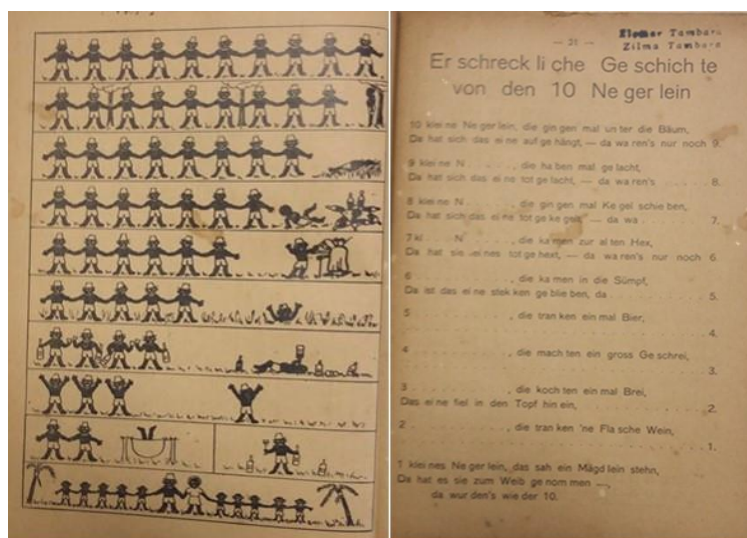 — 31 —
Elemer Tambara
Zilma Tambara
Er schreck li che Ge schich te
von den 10 Ne ger lein
10 klei ne Ne ger lein, die gin gen mal un ter die Bäum,
Da hat sich das ei ne auf ge hängt, — da wa ren's nur noch 9.
9 klei ne N . . . . . . . , die ha ben mal ge lacht,
Da hat sich das ei ne tot ge lacht, — da wa ren's . . . . . . . 8.
8 klei ne N . . . . . . . , die gin gen mal Ke gel schie ben,
Da hat sich das ei ne tot ge ke gelt, — da wa . . . . . . . 7.
7 kl . . . . N . . . . . . . , die ka men zur al ten Hex,
Da hat sie eines tot ge hext, — da wa ren's nur noch 6.
6 . . . . . . . . . . . . . . , die ka men in die Sümpf,
Da ist das ei ne stek ken ge blie ben, da . . . . . . . . . . 5.
5 . . . . . . . . . . . . . . , die tran ken ein mal Bier,
. . . . . . . . . . . . . . . . . . . . . . . . . . . . 4.
4 . . . . . . . . . . . . . . , die mach ten ein gross Ge schrei,
. . . . . . . . . . . . . . . . . . . . . . . . . . . . 3.
3 . . . . . . . . . . . . . . , die koch ten ein mal Brei,
Das ei ne fiel in den Topf hin ein, . . . . . . . . . . . . 2.
2 . . . . . . . . . . . . . . , die tran ken 'ne Fla sche Wein,
. . . . . . . . . . . . . . . . . . . . . . . . . . . . 1.
1 klei nes Ne ger lein, das sah ein Mägd lein stehn,
Da hat es sie zum Weib ge nom men —,
da wur den's wie der 10.